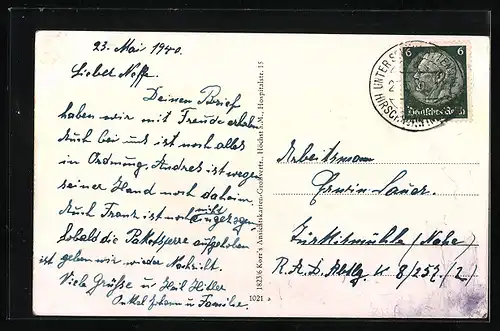 23. Mai 1940.
Lieber Neffe.
Deinen Brief
haben wir mit Freude erhalt.
Auch bei uns ist noch alles
in Ordnung. Andres ist wegen
seiner Hand noch daheim.
Auch Franz ist noch nicht eingezogen.
Sobald die Paketsperre aufgehoben
ist geben wir wieder Nachricht.
Viele Grüße u Heil Hitler
Onkel Johann u Familie.
1823/6 Korr's Ansichtskarten-Großvertr., Höchst a.M., Hospitalstr. 15
1021
6 6
Deutsches Reich
Arbeitsmann
Erwin Sauer.
Türkismühle (Nahe)
R.A.D. Abtlg. K 8/252. (2)